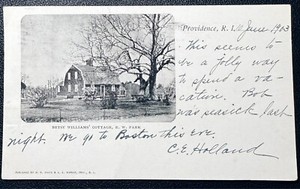 Providence, R. I., June 1903
This seems to
be a jolly way
to spend a va-
cation. Bob
was seasick last
BETSY WILLIAMS' COTTAGE, R. W. PARK.
night. We go to Boston this eve.
C. E. Holland